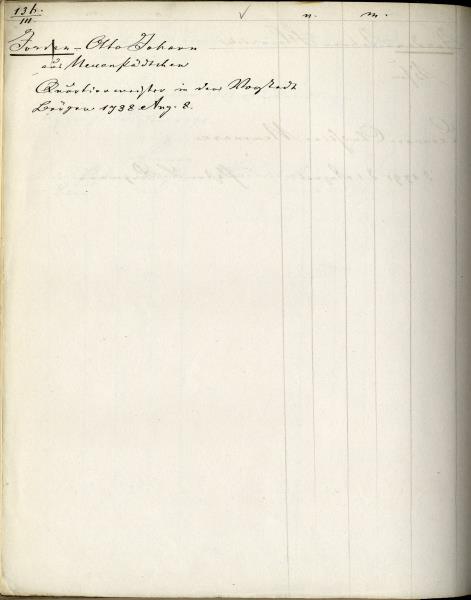 136. n. m.
III
Jorden - Otto Johann
aus Neuenstädtchen
Quartiermeister in der Vorstadt
Bürger 1738 Aug. 8.